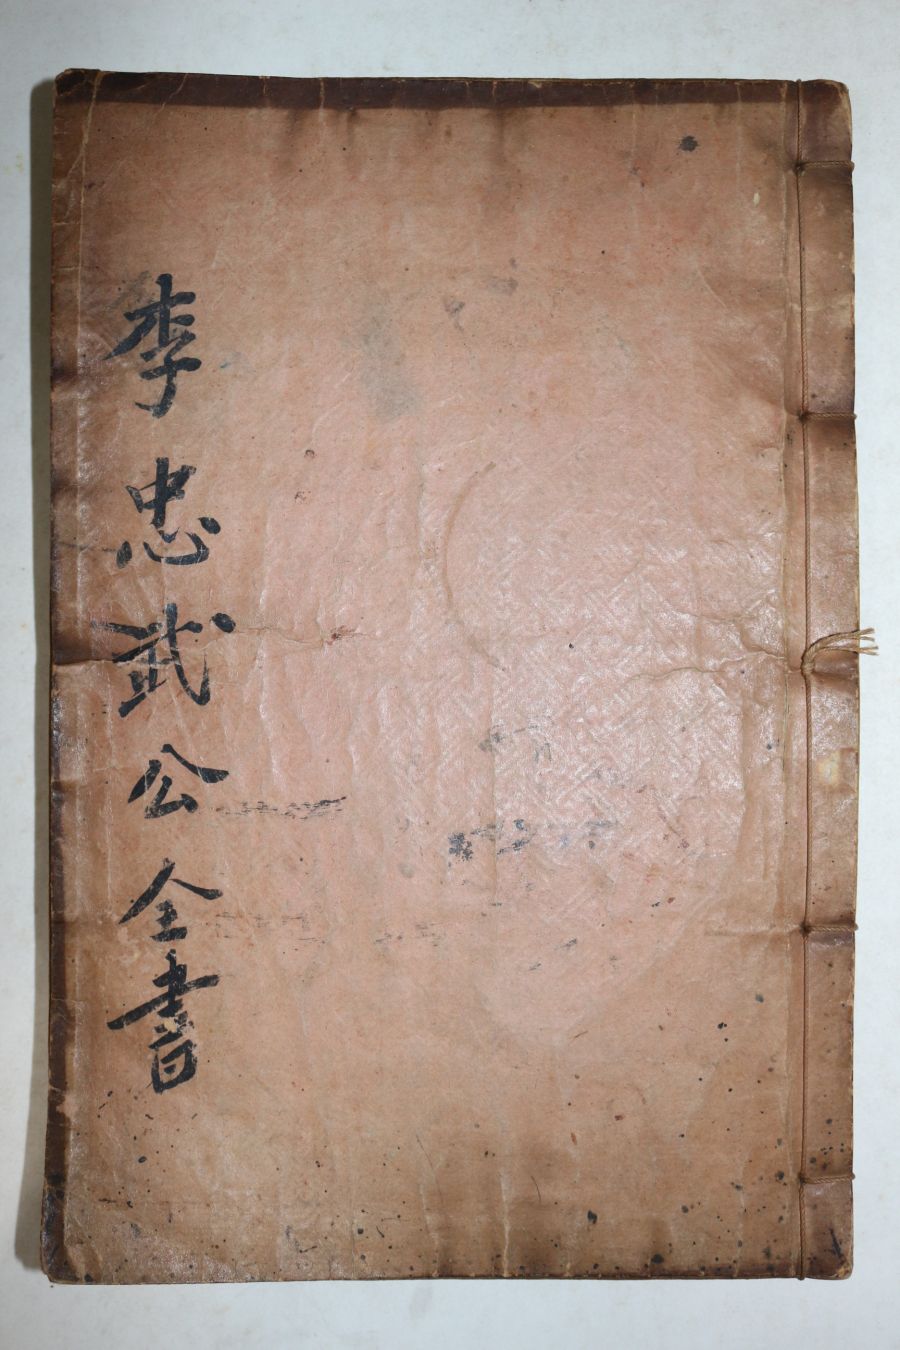 李忠武公全書